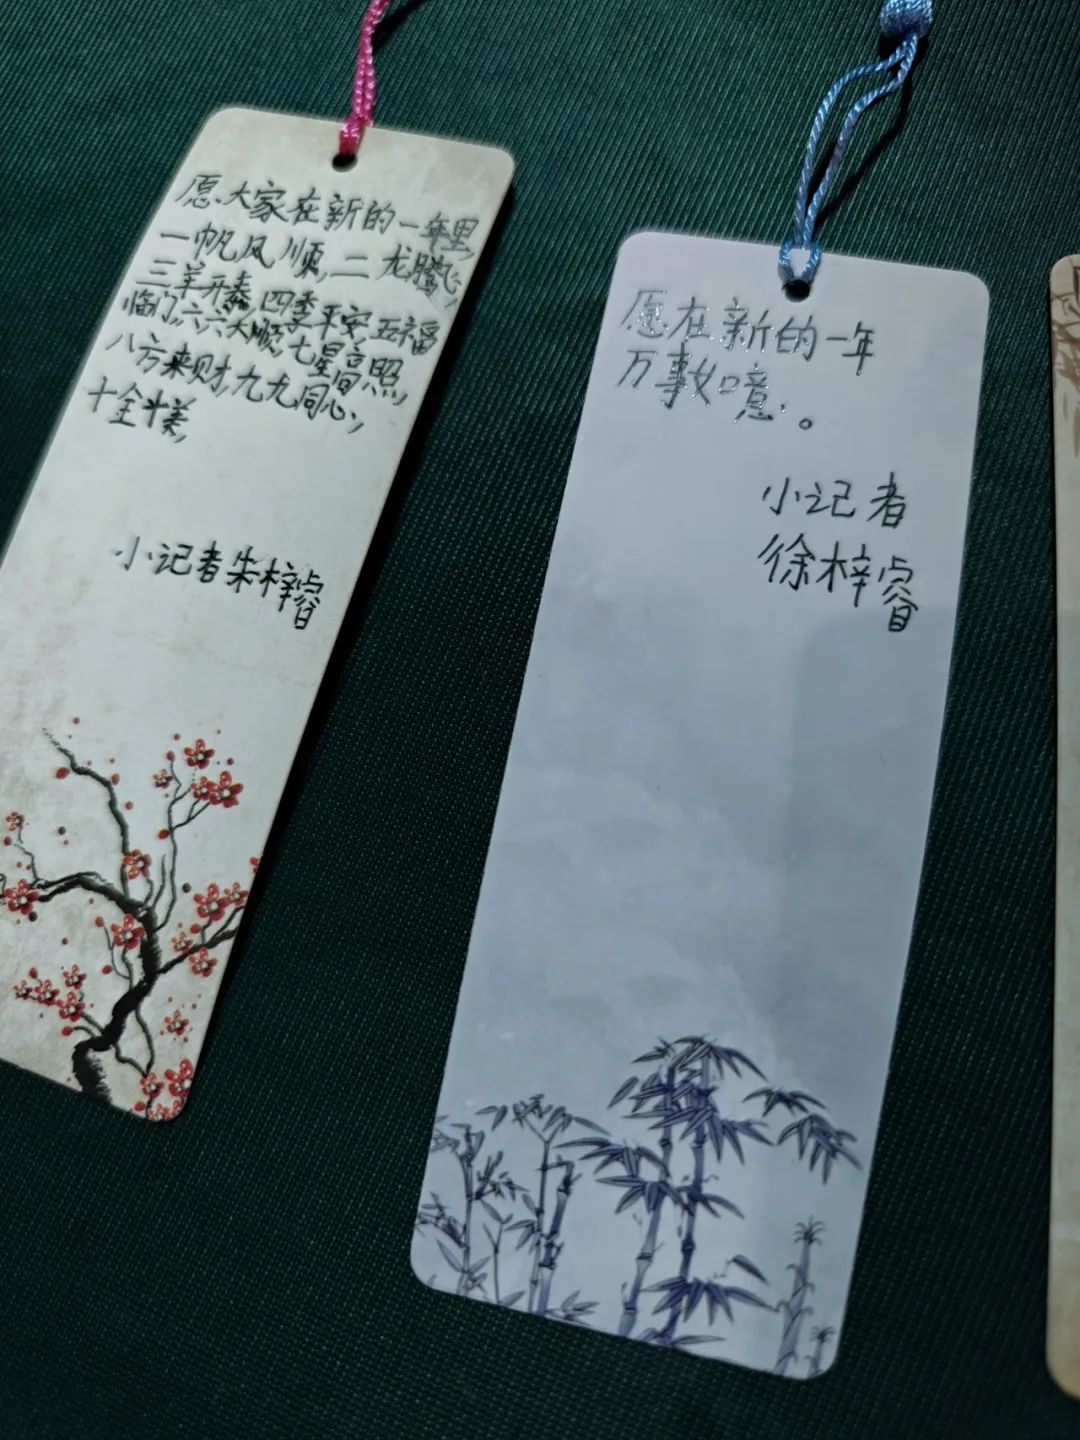 愿大家在新的一年里,
一帆风顺,二龙腾飞,
三羊开泰,四季平安,五福
临门,六六大顺,七星高照,
八方来财,九九同心,
十全十美,
小记者朱梓睿
愿在新的一年
万事如意。
小记者
徐梓睿